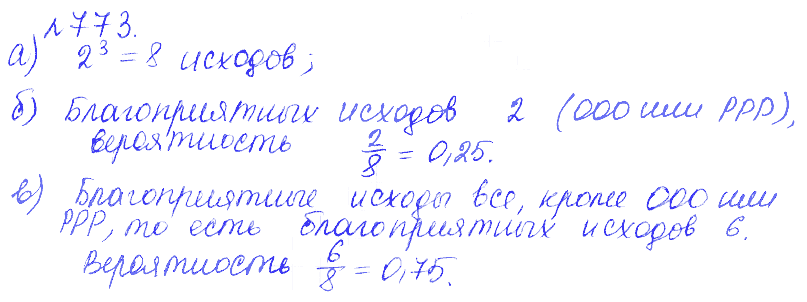 №773.
а) 2³ = 8 исходов;
б) Благоприятных исходов 2 (ООО или РРР),
вероятность 2/8 = 0,25.
в) Благоприятные исходы все, кроме ООО или
РРР, то есть благоприятных исходов 6.
Вероятность 6/8 = 0,75.